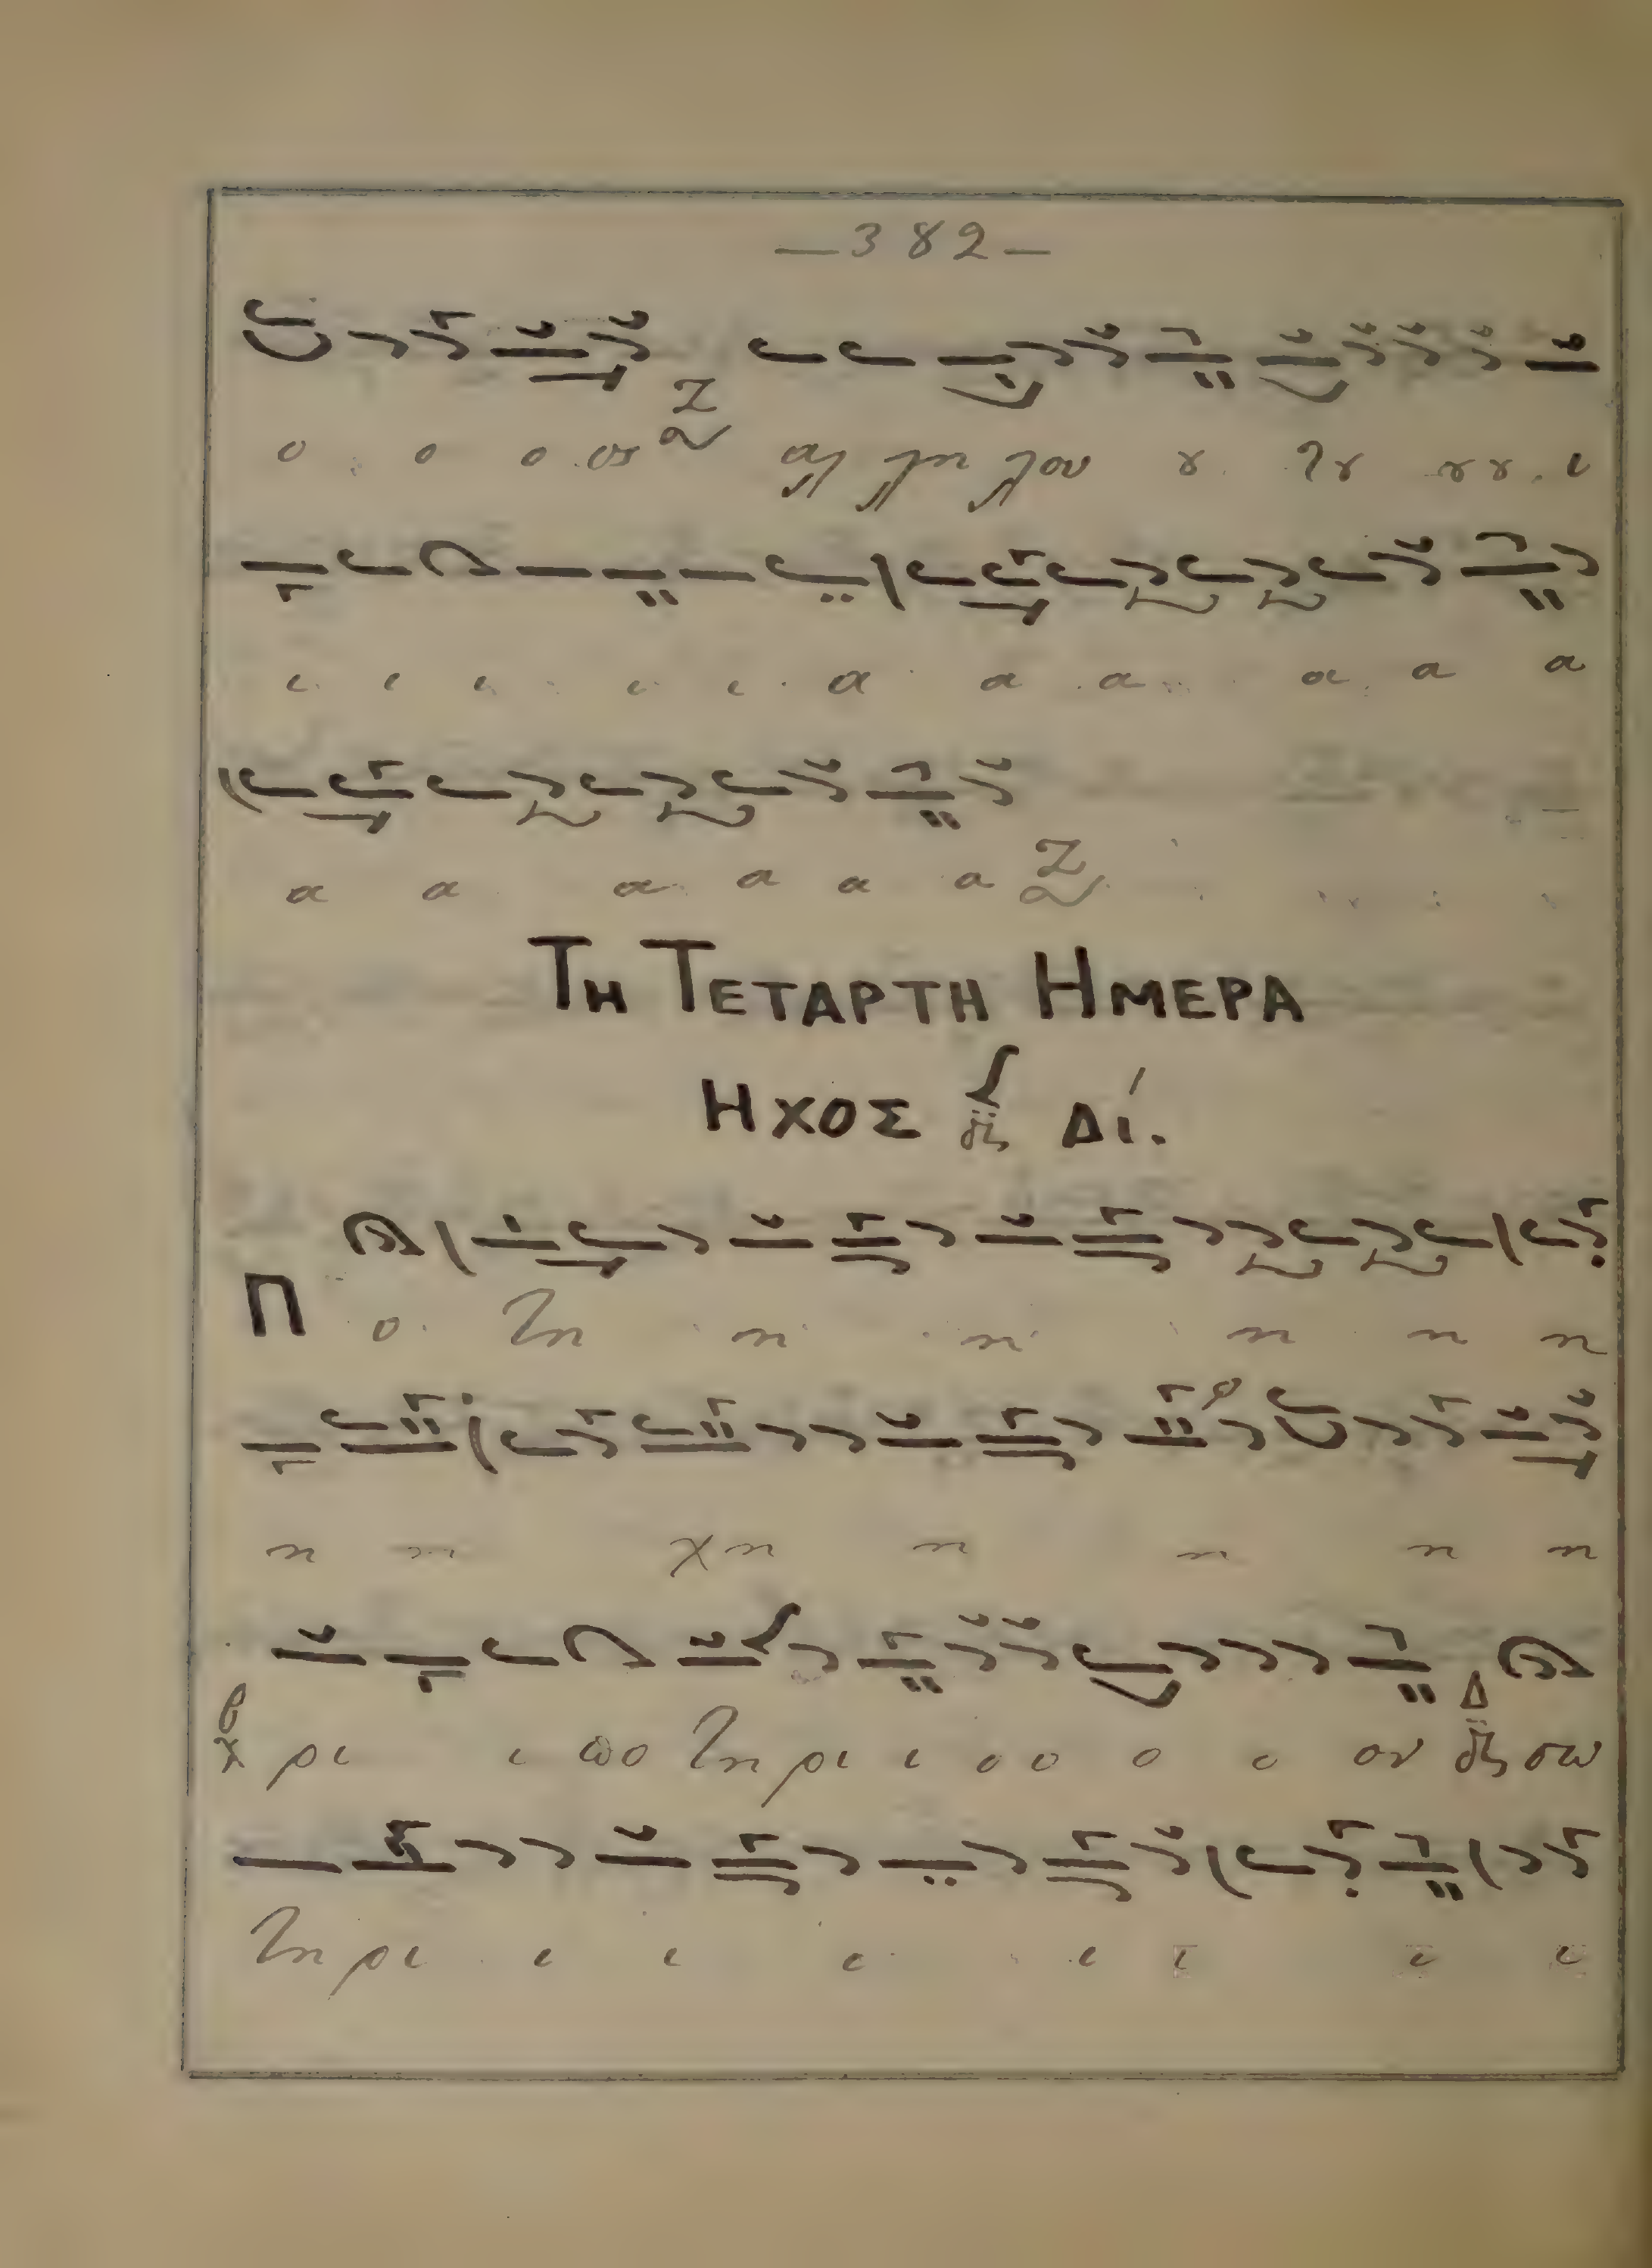 —382—
ο ο ο ος Ζ αλ λη λου ου του ου ου ι
ι ι ι ι ι α α α α α α
α α α α α α Ζ
ΤΗ ΤΕΤΑΡΤΗ ΗΜΕΡΑ
ΗΧΟΣ Δι.
Π ο τη η η η η η
η η χη η η η η
ρι ι πο τη ρι ι ο ο ο ο ον Δ σω
τη ρι ι ι ι ι ι ι ι